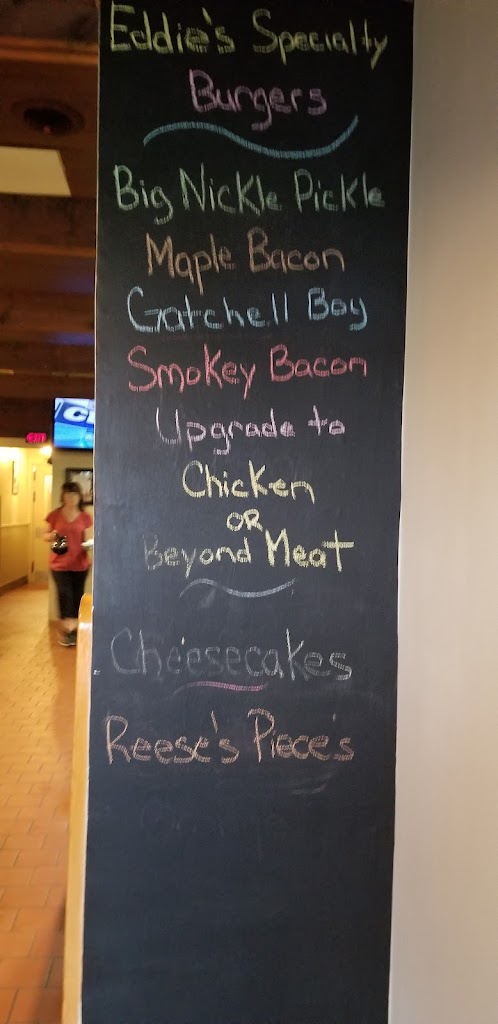 Eddie's Specialty
Burgers
Big Nickle Pickle
Maple Bacon
Gatchell Boy
Smokey Bacon
Upgrade to
Chicken
OR
Beyond Meat
Cheesecakes
Reese's Piece's